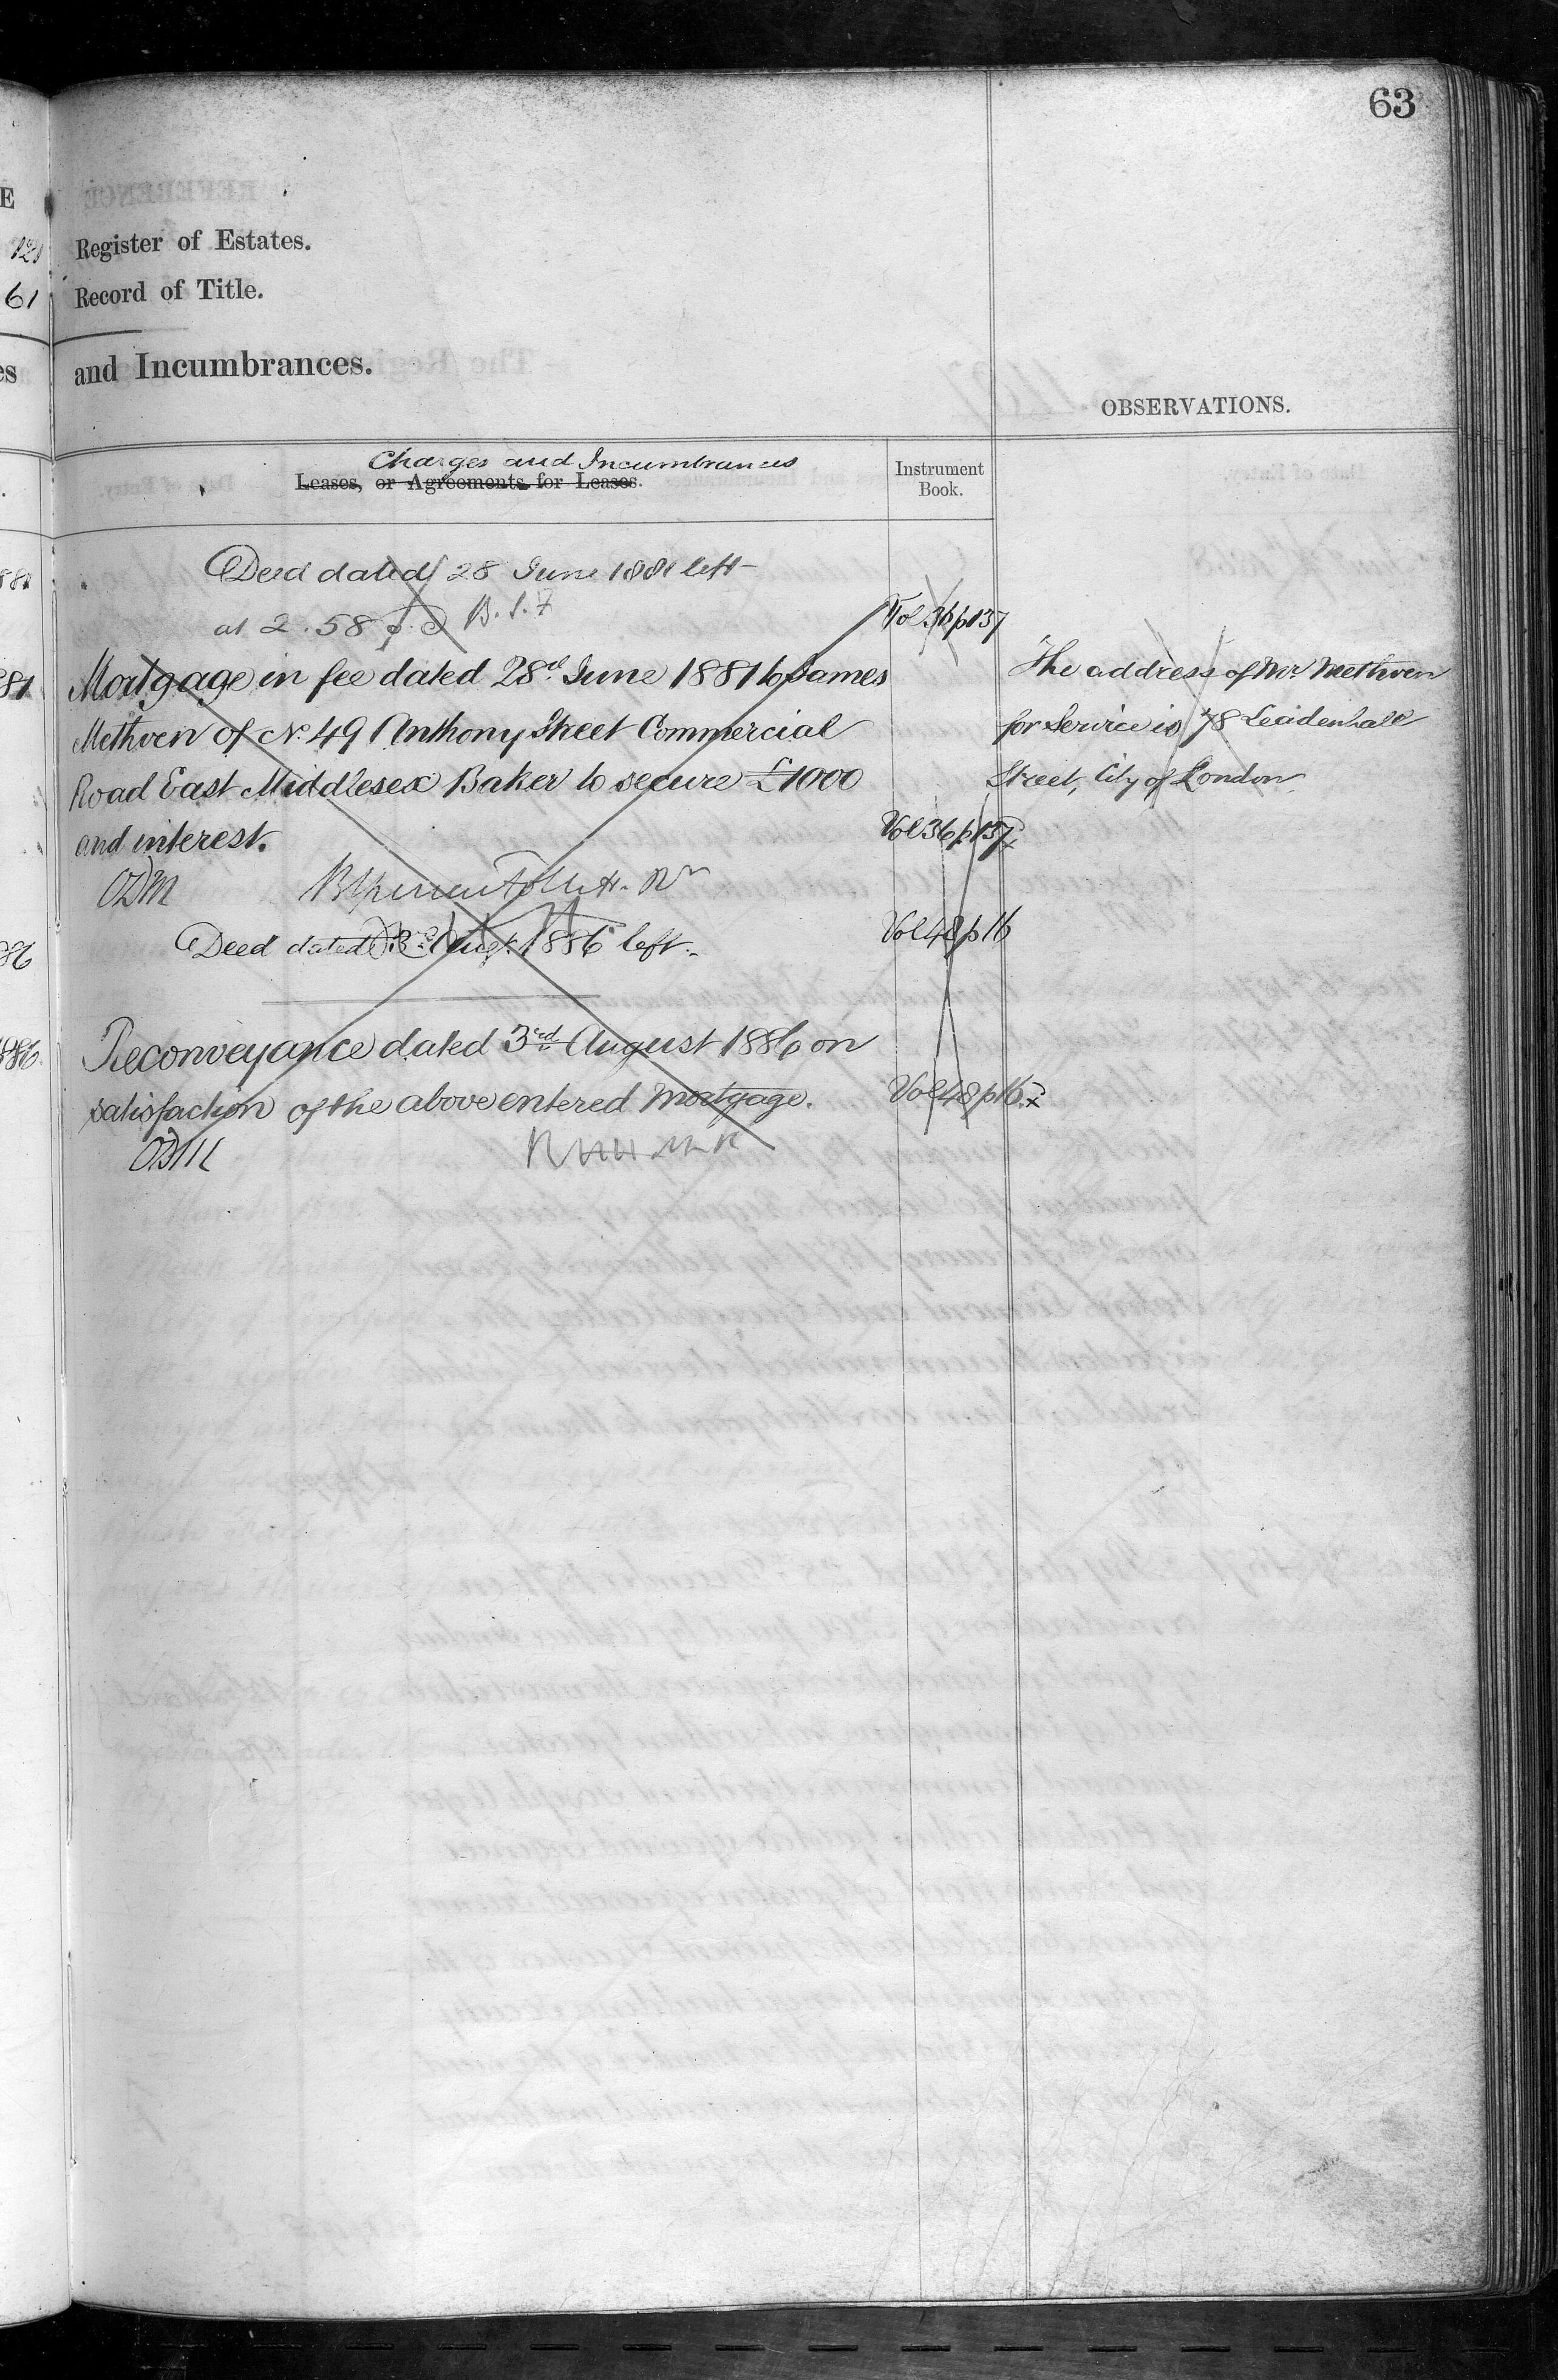 63
E
121
Register of Estates.
61
Record of Title.
es
and Incumbrances.
OBSERVATIONS.
Charges and Incumbrances
Leases, or Agreements for Leases.
Instrument
Book.
Deed dated 28 June 1881 left
at 2.58
Vol 36 p 137
Mortgage in fee dated 28th June 1881 to James
Methven of No. 49 Anthony Street Commercial
Road East Middlesex Baker to secure £1000
and interest.
Vol 36 p 137
The address of Mr. Methven
for Service is 78 Leadenhall
Street, City of London
Deed dated 3rd Augt. 1886 left.
Vol 48 p 16
Reconveyance dated 3rd August 1886 on
satisfaction of the above entered Mortgage.
Vol 48 p 16